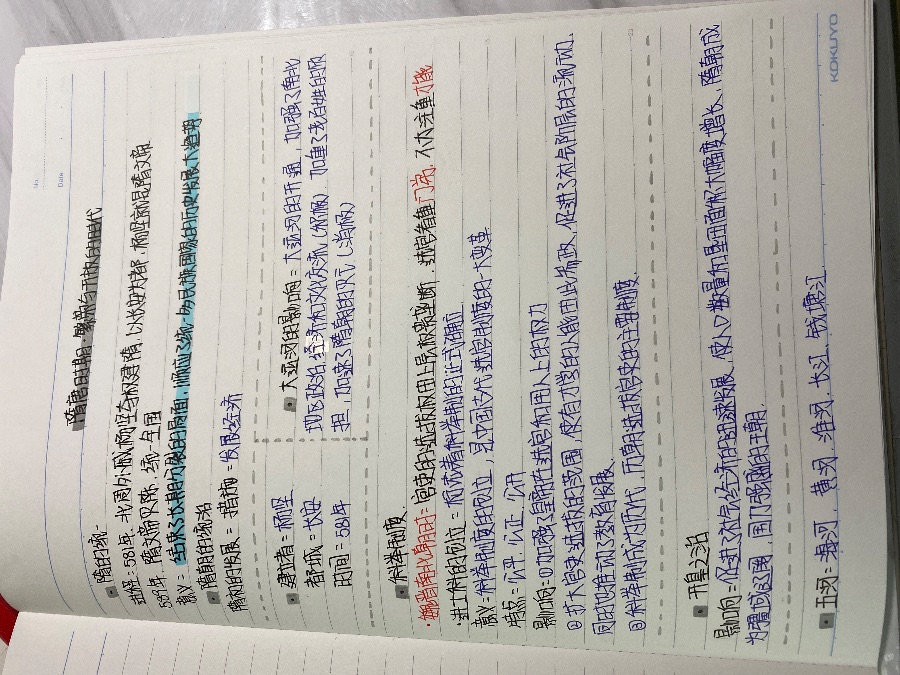 No.
Date
隋唐时期：繁荣与开放的时代
隋的统一
过程：581年，北周外戚杨坚夺权建隋，以长安为都，杨坚就是隋文帝
589年，隋文帝灭陈，统一全国
意义：结束了长期的分裂的局面，顺应了统一多民族国家的历史发展大趋势
隋朝的统治
隋初的发展：措施：发展经济
建立者：杨坚
都城：长安
时间：581年
大运河的影响：大运河的开通，加强了南北
地区政治、经济和文化交流（积极）. 加重了老百姓的负
担，加速了隋朝的灭亡（消极）
科举制度
魏晋南北朝时期：官吏的选拔权由上层权贵垄断，选官看重门第，不太注重才能
进士科的创立：标志着科举制的正式确立
意义：科举制度的创立，是中国古代选官制度的一大变革
特点：公平，公正，公开
影响：①加强了皇帝在选官和用人上的权力
②扩大官吏选拔的范围，使有才学的人能由此参政，促进了社会阶层的流动.
同时也推动了教育发展.
③科举制成为历代，历朝选拔官吏的主要制度
开皇之治
影响：促进了社会经济的迅速发展，使人口数量和垦田面积大幅度增长，隋朝成
为疆域辽阔，国力强盛的王朝.
五河：海河，黄河，淮河，长江，钱塘江
KOKUYO